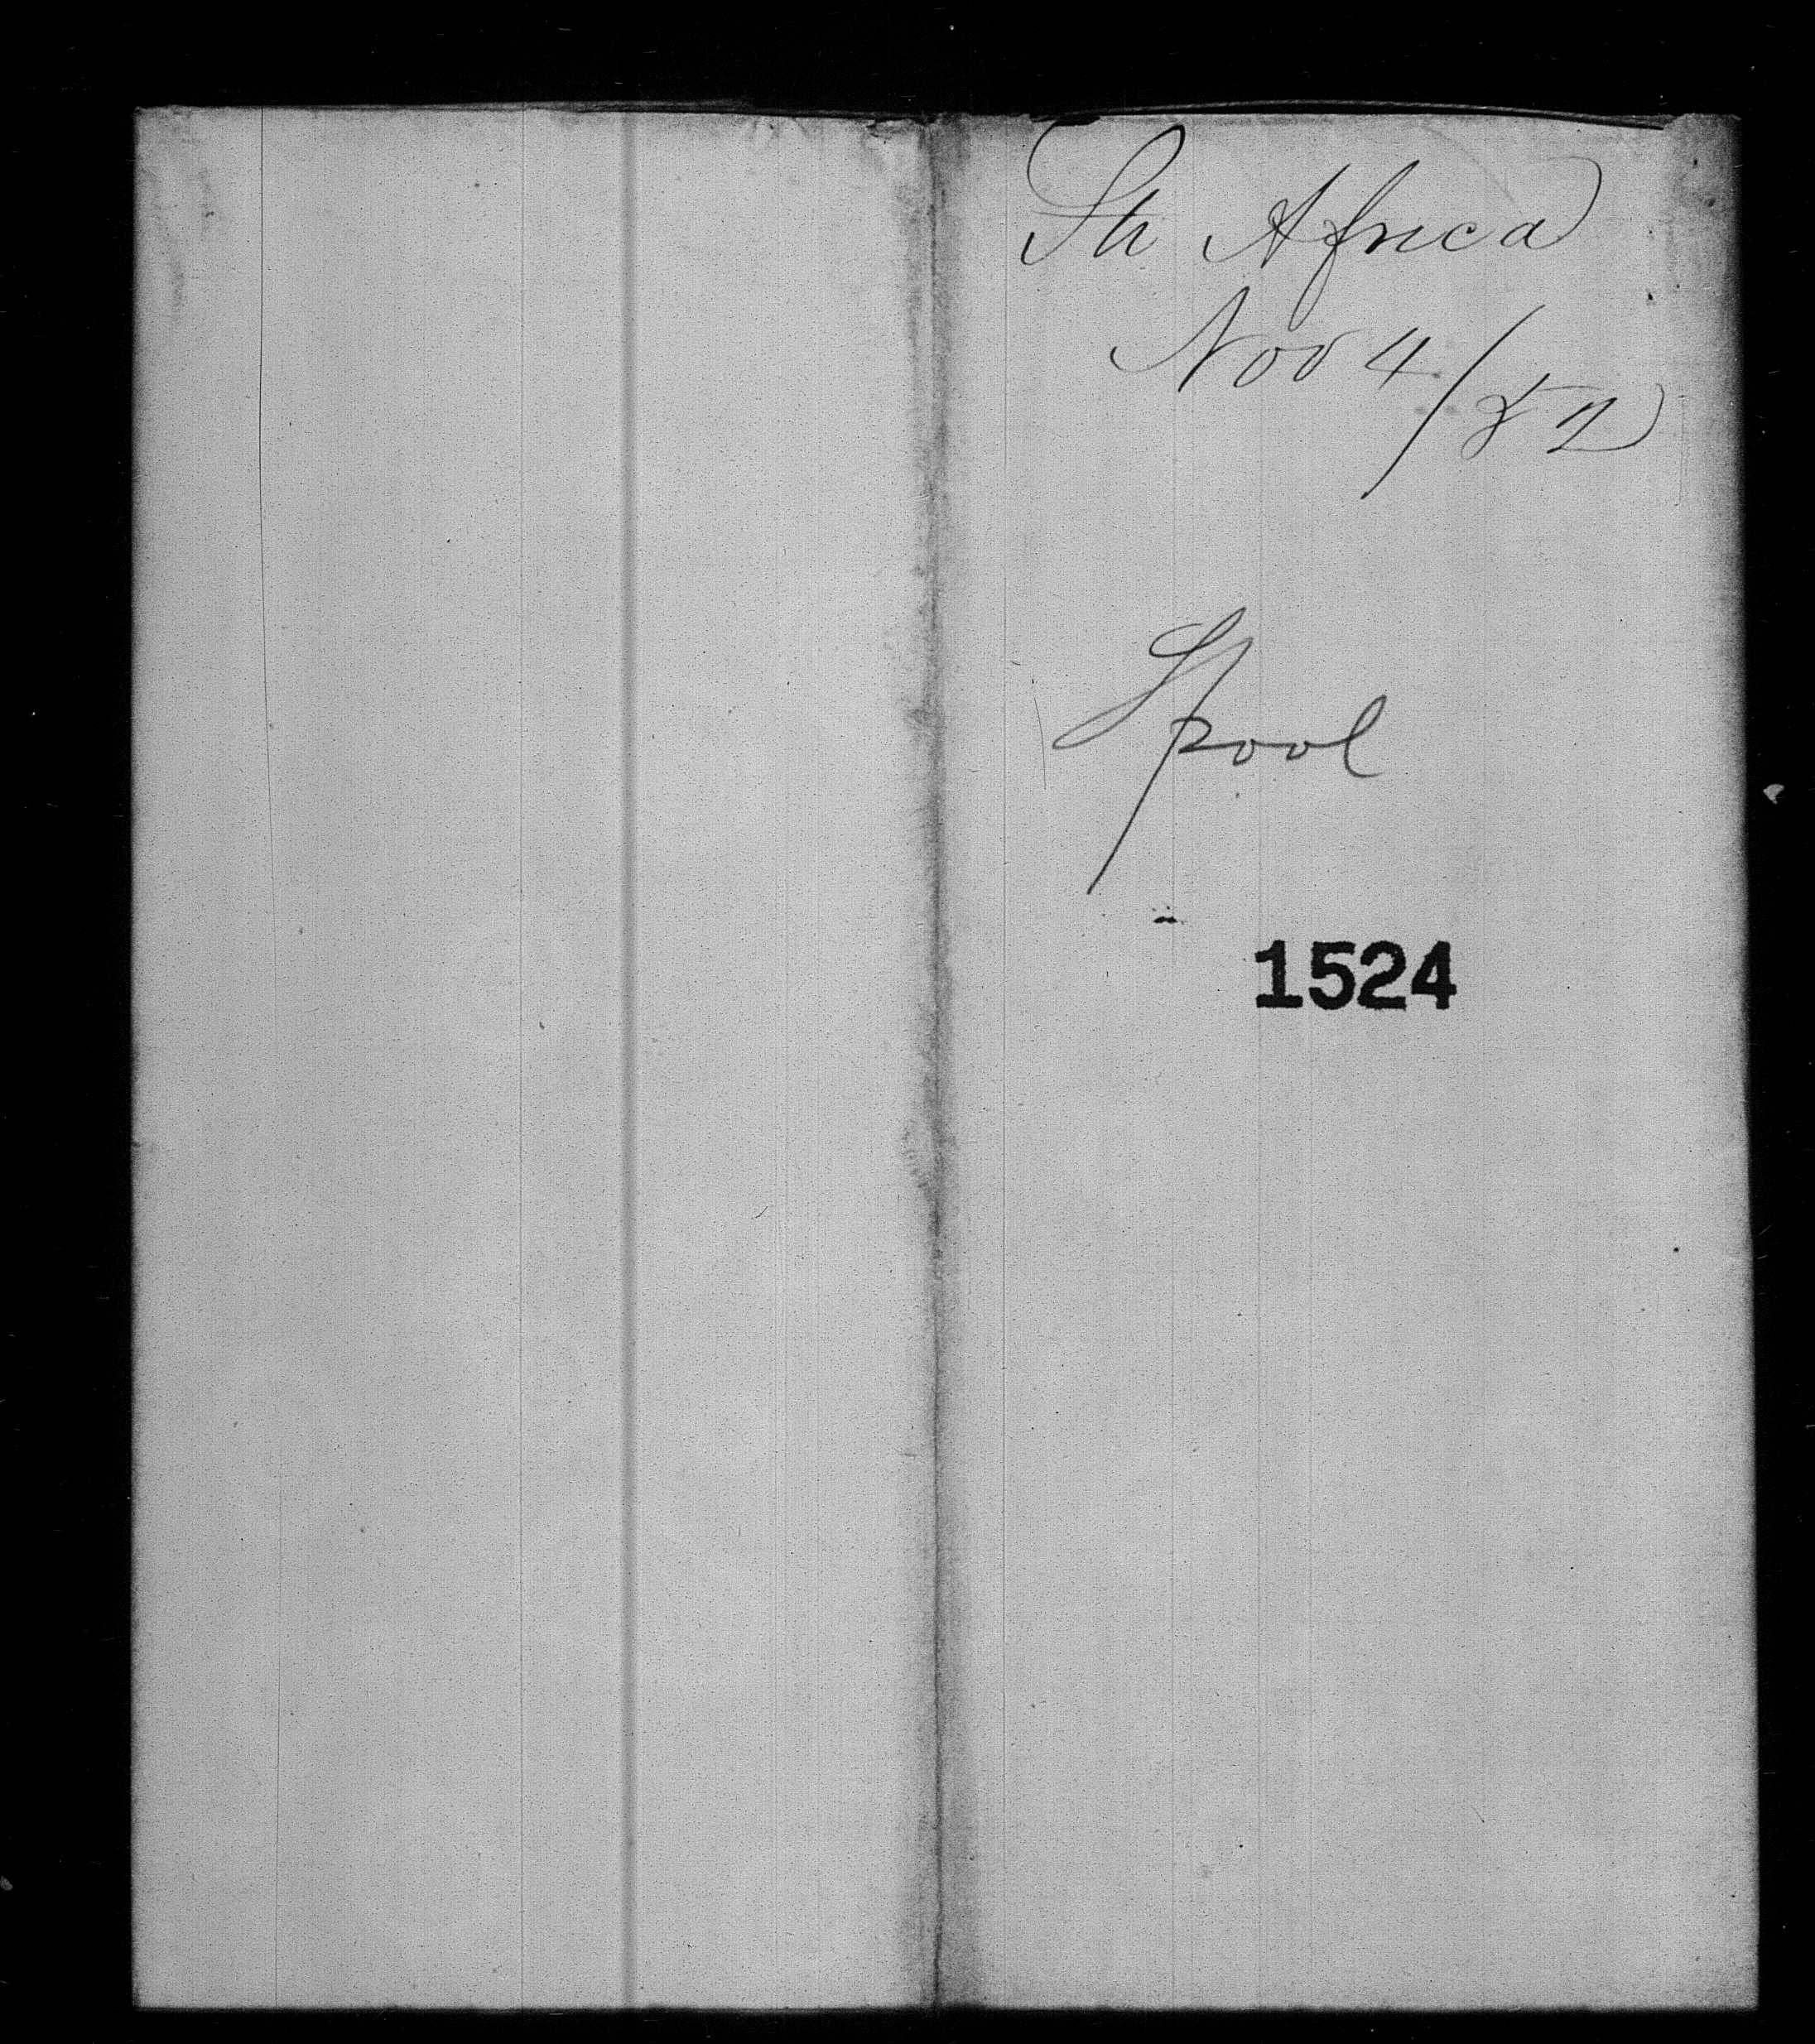 Str Africa
Nov 4/52
Spool
1524